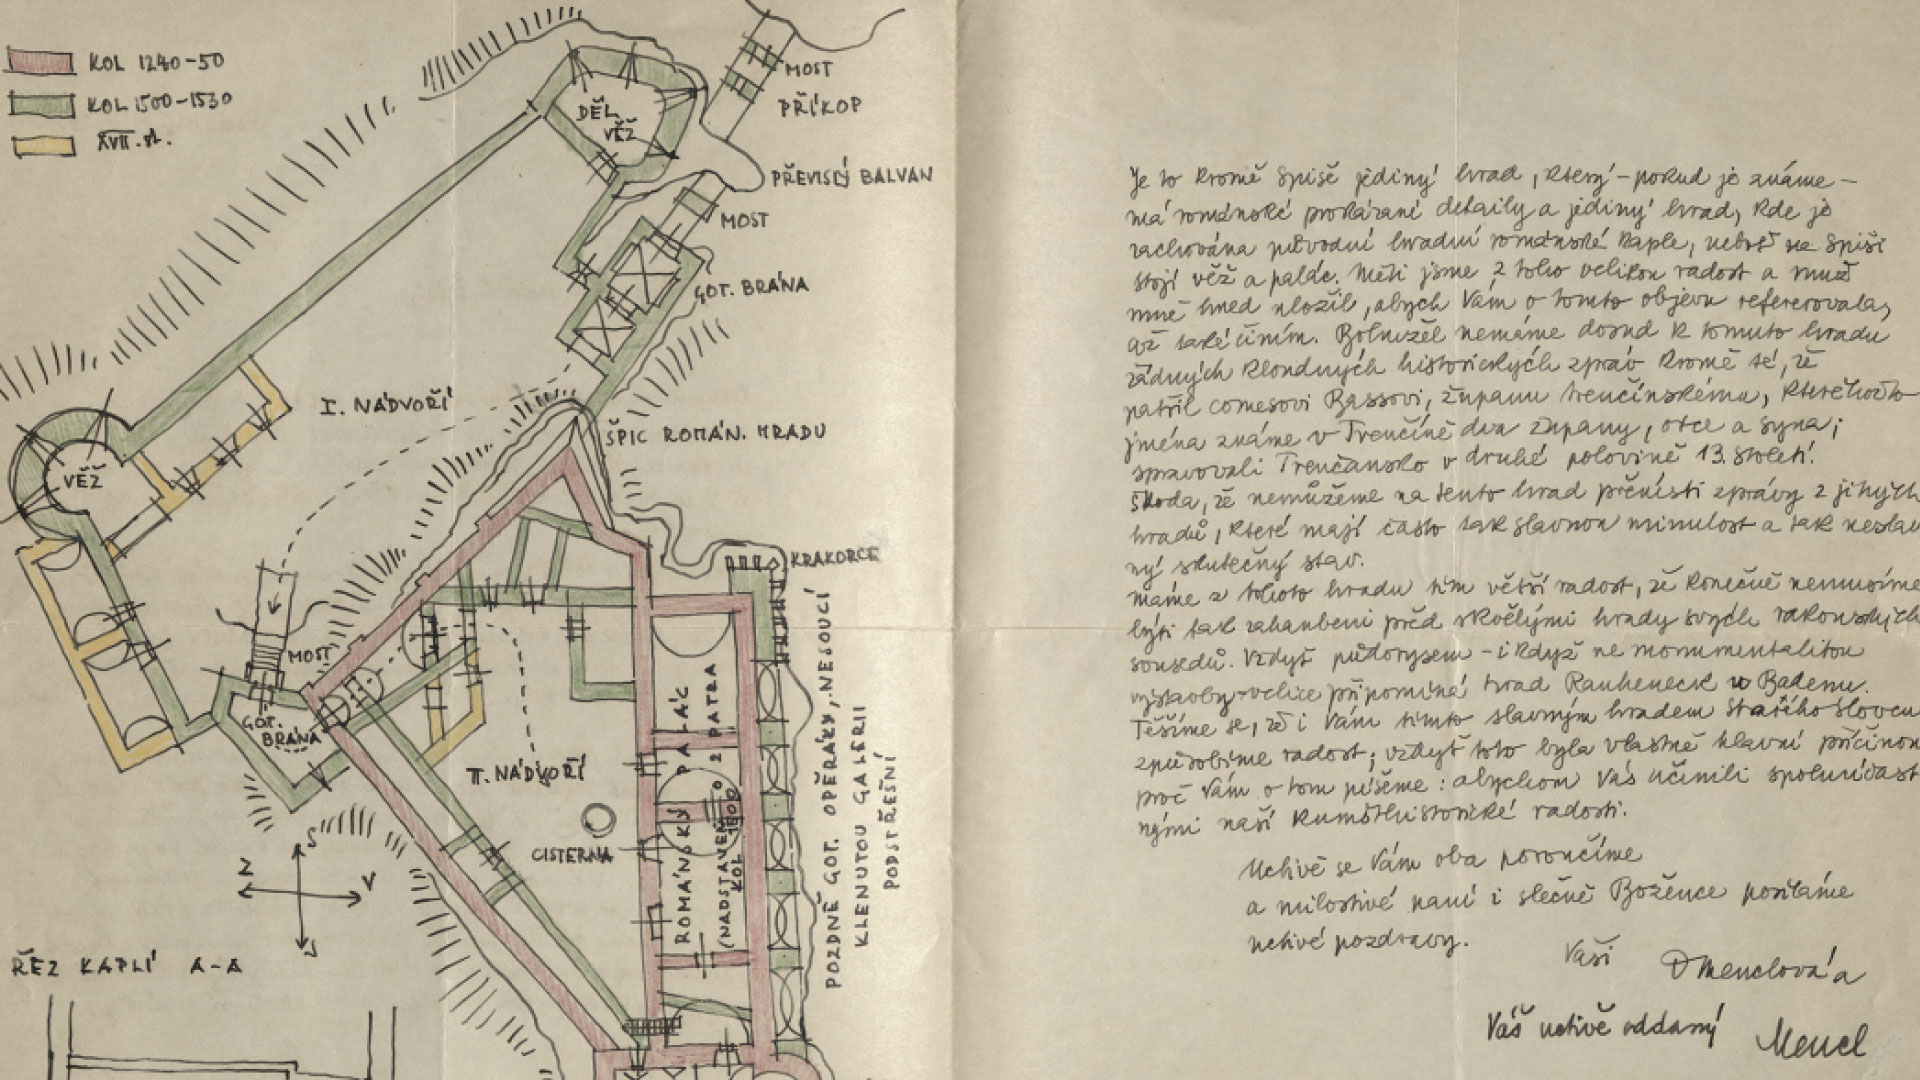 KOL 1240-50
KOL 1500-1530
XVII. st.
DĚL.
VĚŽ
MOST
PŘÍKOP
PŘEVISLÝ BALVAN
MOST
GOT. BRÁNA
I. NÁDVOŘÍ
ŠPIC ROMÁN. HRADU
VĚŽ
KRAKORCE
MOST
GOT.
BRÁNA
II. NÁDVOŘÍ
CISTERNA
ROMÁNSKÝ PALÁC
(NADSTAVEN O 2 PATRA
KOL 1500)
POZDNĚ GOT. OPĚRÁKY, NESOUCÍ
KLENUTOU GALERII
PODSTŘEŠNÍ
S
Z
V
J
ŘEZ KAPLÍ A-A
Je to kromě Spiše jediný hrad, který - pokud je známe -
má románské prokázané detaily a jediný hrad, kde je
zachována původní hradní románská kaple, neboť na Spiši
stojí věž a palác. Měli jsme z toho velikou radost a muž
mně hned uložil, abych Vám o tomto objevu referovala,
což také činím. Bohužel nemáme dosud k tomuto hradu
žádných kloudných historických zpráv kromě té, že
patřil comesovi Bassovi, županu trenčínskému, kteréhožto
jména známe v Trenčíně dva župany, otce a syna;
spravovali Trenčansko v druhé polovině 13. století.
Škoda, že nemůžeme na tento hrad přenésti zprávy z jiných
hradů, které mají často tak slavnou minulost a tak neslav
ný skutečný stav.
Máme z tohoto hradu tím větší radost, že konečně nemusíme
býti tak zahanbeni před skvělými hrady svých rakouských
sousedů. Vždyť půdorysem - i když ne monumentalitou
výstavby - velice připomíná hrad Rauheneck u Badenu.
Těšíme se, že i Vám tímto slavným hradem starého Sloven
způsobíme radost; vždyť toto byla vlastně hlavní příčinou
proč Vám o tom píšeme: abychom Vás učinili spoluúčast
nými naší kumšthistorické radosti.
Uctivě se Vám oba poroučíme
a milostivé paní i slečně Božence posíláme
uctivé pozdravy.
Vaši
DMenclová a
Váš uctivě oddaný
Mencl